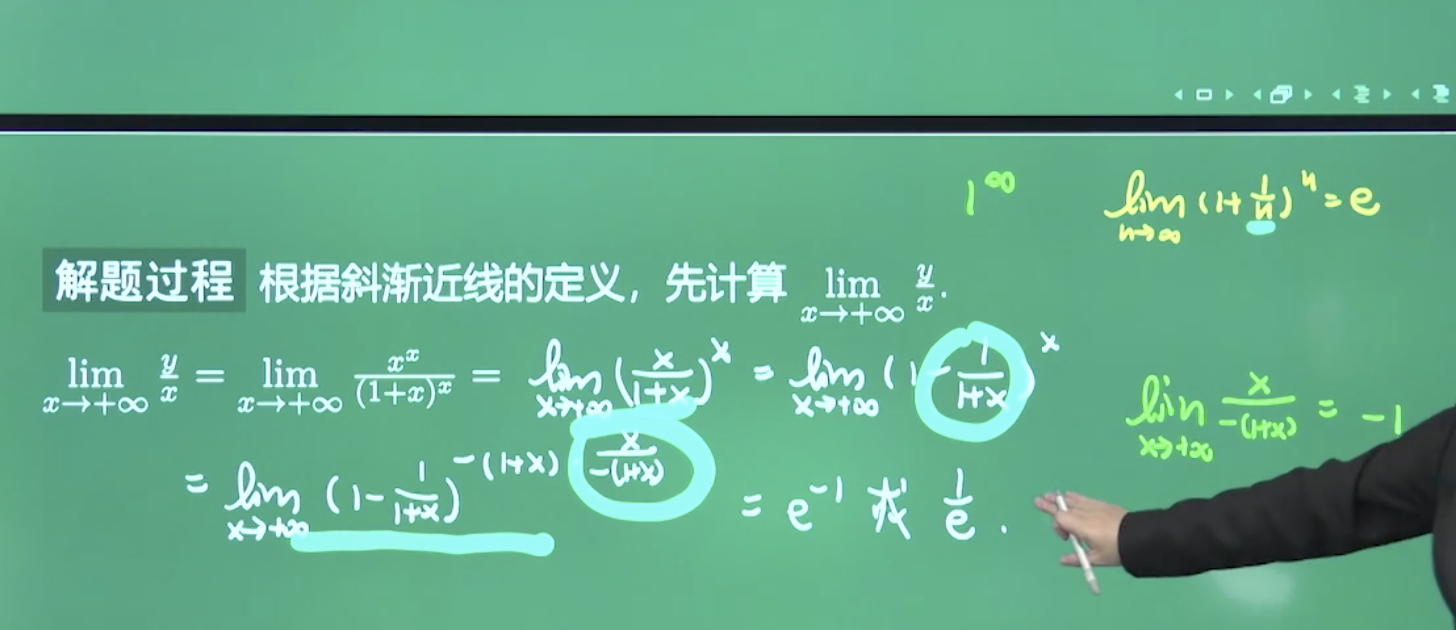 1^∞
lim n→∞ (1+1/n)^n = e
解题过程 根据斜渐近线的定义，先计算 lim x→+∞ y/x.
lim x→+∞ y/x = lim x→+∞ x^x/(1+x)^x = lim x→+∞ (x/(1+x))^x = lim x→+∞ (1-1/(1+x))^x
lim x→+∞ x/(-(1+x)) = -1
= lim x→+∞ (1-1/(1+x))^(-(1+x) x/(-(1+x))) = e^-1 或 1/e.